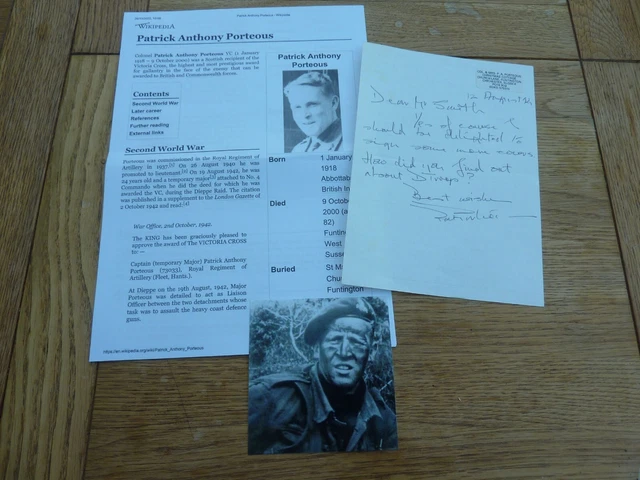 Patrick Anthony Porteous - Wikipedia
WIKIPEDIA
Patrick Anthony Porteous
Colonel Patrick Anthony Porteous VC (1 January
1918 – 9 October 2000) was a Scottish recipient of the
Victoria Cross, the highest and most prestigious award
for gallantry in the face of the enemy that can be
awarded to British and Commonwealth forces.
Contents
Second World War
Later career
References
Further reading
External links
Second World War
Porteous was commissioned in the Royal Regiment of
Artillery in 1937.[1] On 26 August 1940 he was
promoted to lieutenant.[2] On 19 August 1942, he was
24 years old and a temporary major[3] attached to No. 4
Commando when he did the deed for which he was
awarded the VC, during the Dieppe Raid. The citation
was published in a supplement to the London Gazette of
2 October 1942 and read:[4]
War Office, 2nd October, 1942.
The KING has been graciously pleased to
approve the award of The VICTORIA CROSS
to: —
Captain (temporary Major) Patrick Anthony
Porteous (73033), Royal Regiment of
Artillery (Fleet, Hants.).
At Dieppe on the 19th August, 1942, Major
Porteous was detailed to act as Liaison
Officer between the two detachments whose
task was to assault the heavy coast defence
guns.
https://en.wikipedia.org/wiki/Patrick_Anthony_Porteous
Patrick Anthony
Porteous
Born
1 January
1918
Abbottab
British In
Died
9 Octobe
2000 (a
82)
Funtin
West
Susse
Buried
St M
Chu
Funtington
12 August
Dear Mr Smith
Yes of course I
should be delighted to
sign some more covers
How did you find out
about Dieppe?
Best wishes